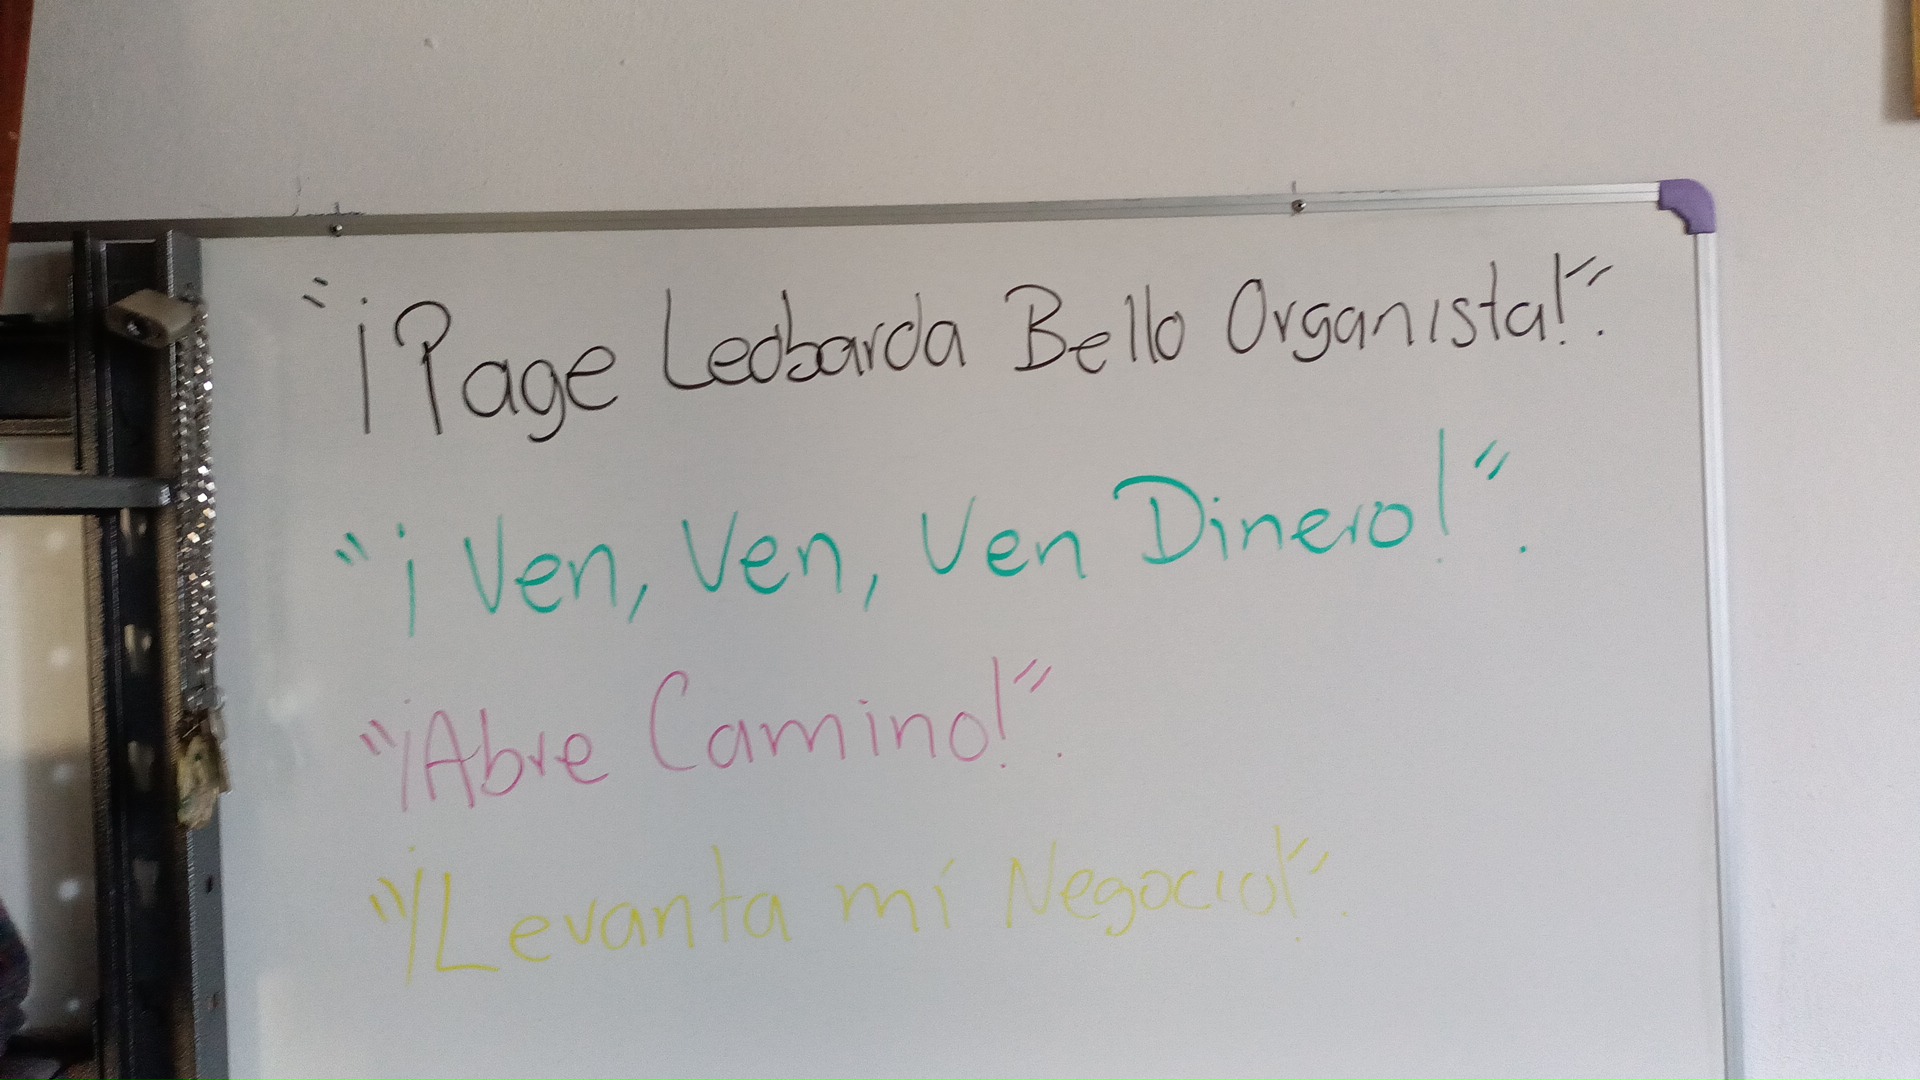 "¡Page Leobarda Bello Organista!".
"¡Ven, Ven, Ven Dinero!".
"¡Abre Camino!".
"¡Levanta mí Negocio!".